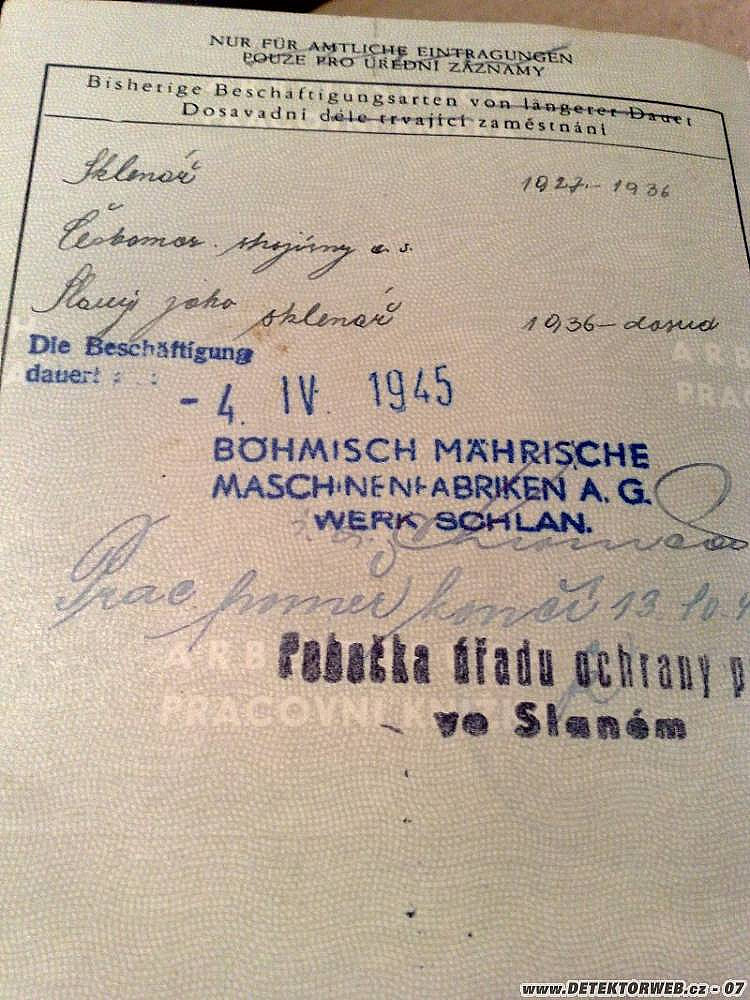 NUR FÜR AMTLICHE EINTRAGUNGEN
POUZE PRO ÚŘEDNÍ ZÁZNAMY
Bisherige Beschäftigungsarten von längerer Dauer
Dosavadní déle trvající zaměstnání
Sklenář 1927 - 1936
Českomor. strojírny a. s.
Slaný jako sklenář 1936 - dosud
Die Beschäftigung
dauert : :
- 4. IV. 1945
BÖHMISCH MÄHRISCHE
MASCHINENFABRIKEN A. G.
WERK SCHLAN.
Prac. poměr končí 13. 10. 4
ARB
Pobočka úřadu ochrany p
PRACOVNÍ K
ve Slaném
ARB
PRAC
www.DETEKTORWEB.cz - 07